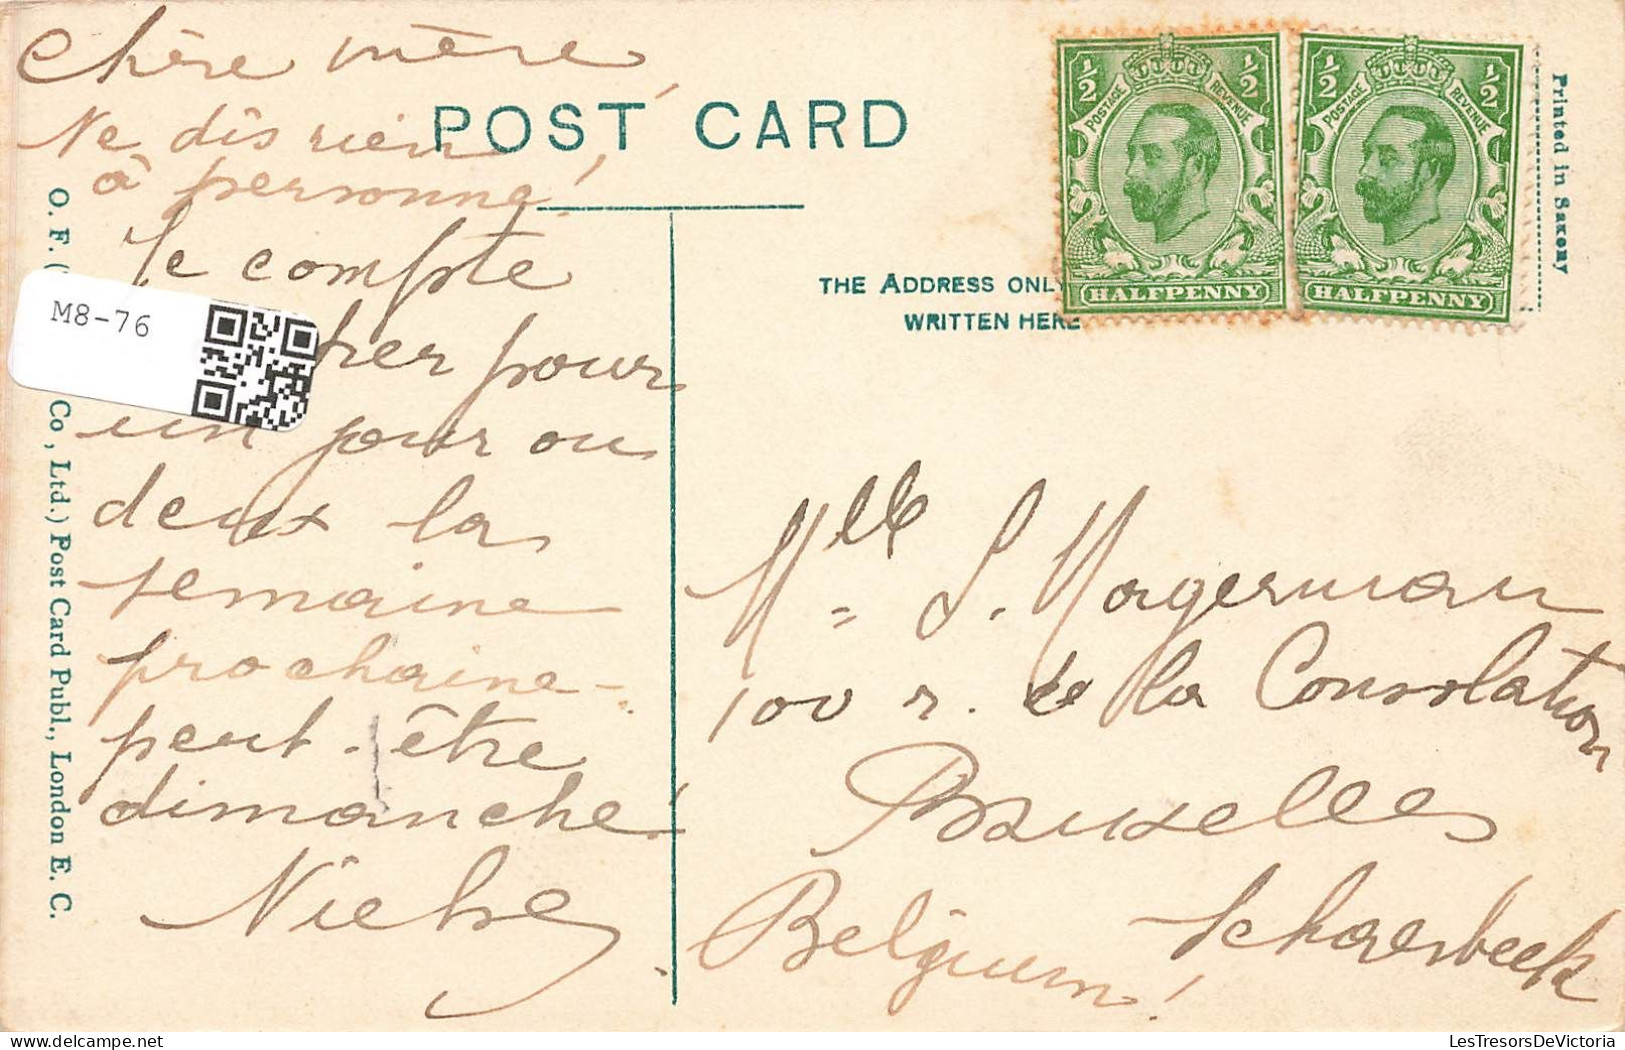 Chère mère,
Ne dis rien
à personne!
Je compte
pour
un jour ou
deux la
semaine
prochaine -
peut-être
dimanche!
POST CARD
THE ADDRESS ONLY
WRITTEN HERE
POSTAGE REVENUE
½ ½
HALFPENNY
POSTAGE REVENUE
½ ½
HALFPENNY
Printed in Saxony
Mlle = S. Magerman
100 r. de la Consolation
Bruxelles
Schaerbeek
Belgium!
O. F. Co, Ltd.) Post Card Publ., London E. C.
M8-76
LesTresorsDeVictoria.com